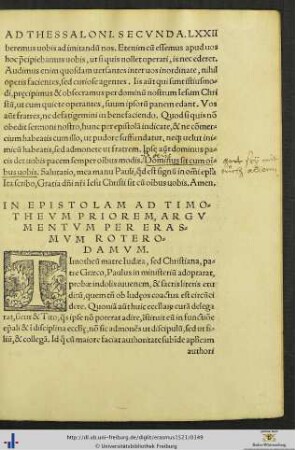 AD THESSALONI. SECVNDA. LXXII
beremus uobis ad imitandū nos. Etenim cū essemus apud uos
hoc p̄cipiebamus uobis, ut si quis nollet operari, is nec ederet.
Audimus enim quosdam uersantes inter uos inordinate, nihil
operis facientes, sed curiose agentes. Iis aūt qui sunt istiusmo
di, p̄cipimus & obsecramus per dominū nostrum Iesum Chri
stū, ut cum quiete operantes, suum ipsorū panem edant. Vos
aūt fratres, ne defatigemini in benefaciendo. Quod si quis nō
obedit sermoni nostro, hunc per epistolā indicate, & ne cōmer
cium habeatis cum illo, ut pudore suffundatur, neq; uelut ini
micū habeatis, sed admonete ut fratrem. Ipse aūt dominus pa
cis det uobis pacem semper oībus modis. Dominus sit cum oī
bus uobis. Salutatio, mea manu Pauli, qd est signū in omī ep̄la
Ita scribo, Gratia dn̄i nr̄i Iesu Christi sit cū oībus uobis, Amen.
IN EPISTOLAM AD TIMO
THEVM PRIOREM, ARGV
MENTVM PER ERAS
MVM ROTERO
DAMVM.
TImotheū matre Iudæa, sed Christiana, pa
tre Græco, Paulus in ministeriū adoptarat,
probæ indolis iuuenem, & sacris literis eru
ditū, quem tñ ob Iudęos coactus est circūci
dere. Quoniā aūt huic ecclīaȓ curā delega
rat, sicut & Tito, qs ipse nō poterat adire, īstruit eū in functiōe
ep̄ali & i disciplina ecclīę, nō sic admonēs ut discipulū, sed ut fi
liū, & collegā. Id q; cū maiore faciat authoritate subīde apl̄icam
authori
http://dl.ub.uni-freiburg.de/diglit/erasmus1521/0149
© Universitätsbibliothek Freiburg
Baden-Württemberg